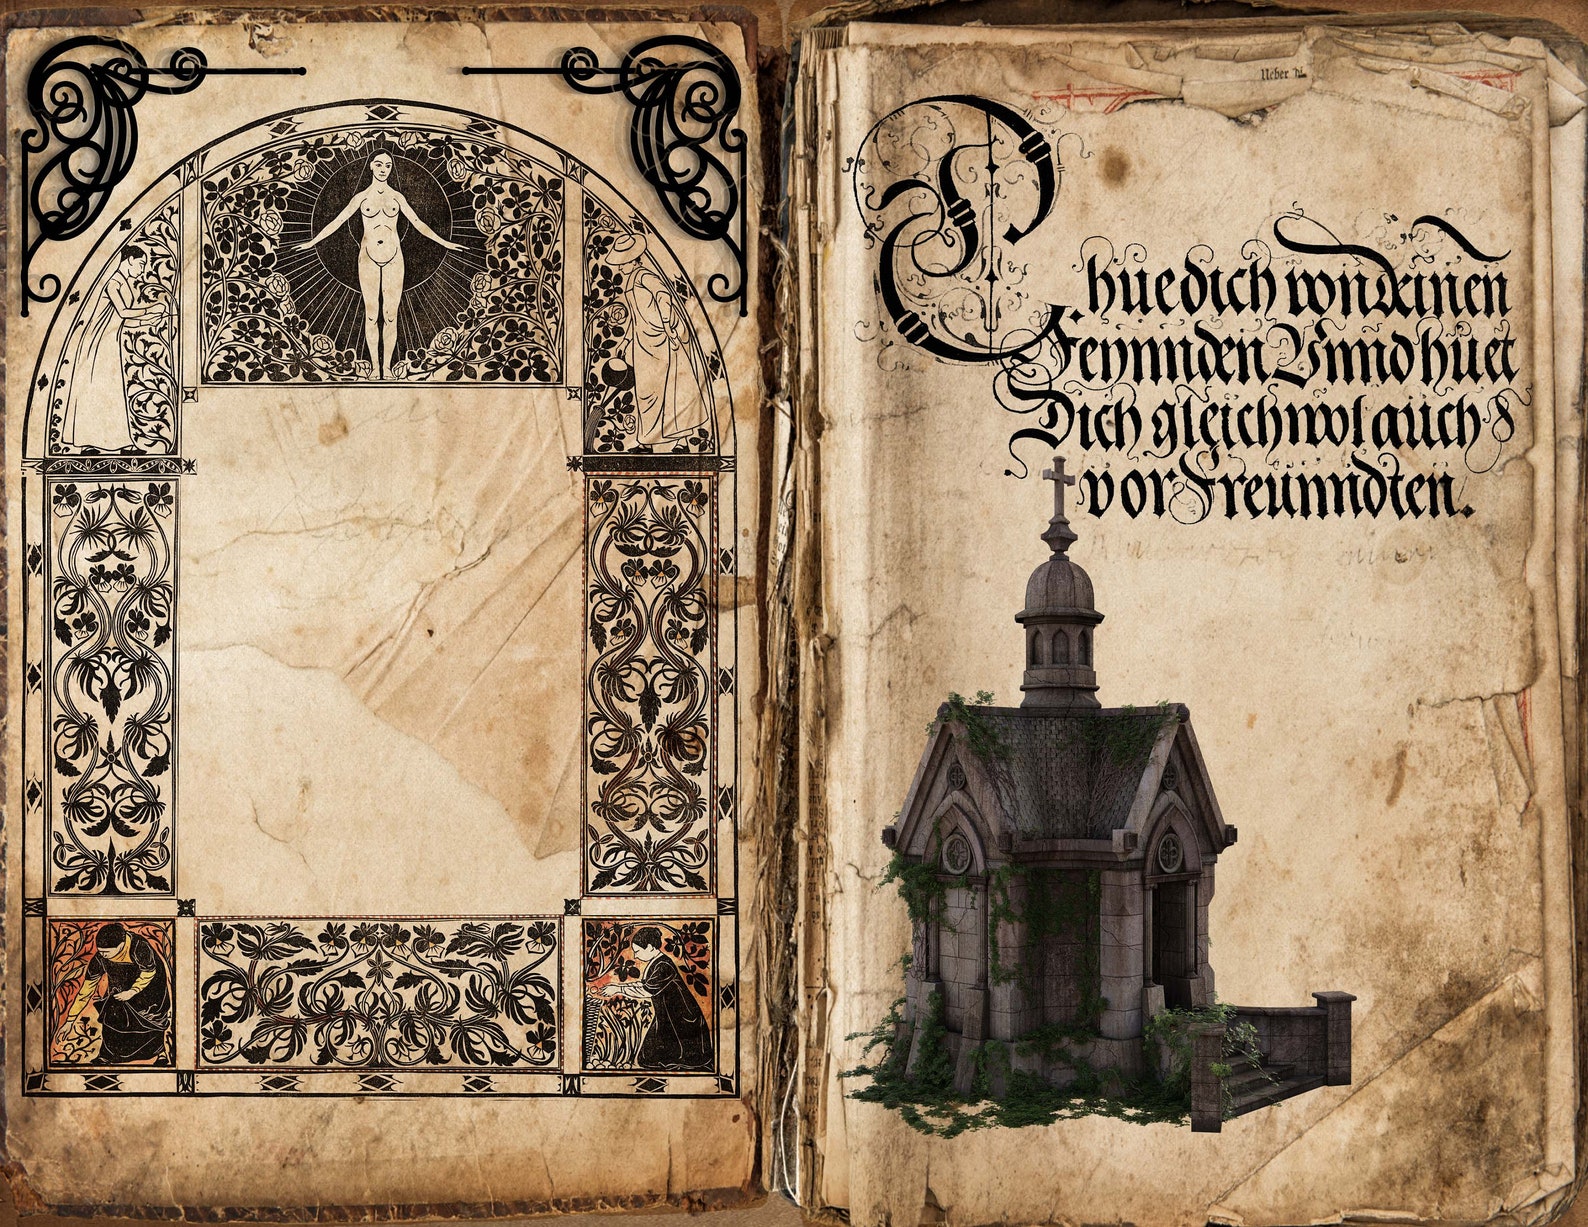 Ueber
Thue dich von Deinen
Feynnden Vnnd huet
Dich gleichwol auch
vor Freunndten.